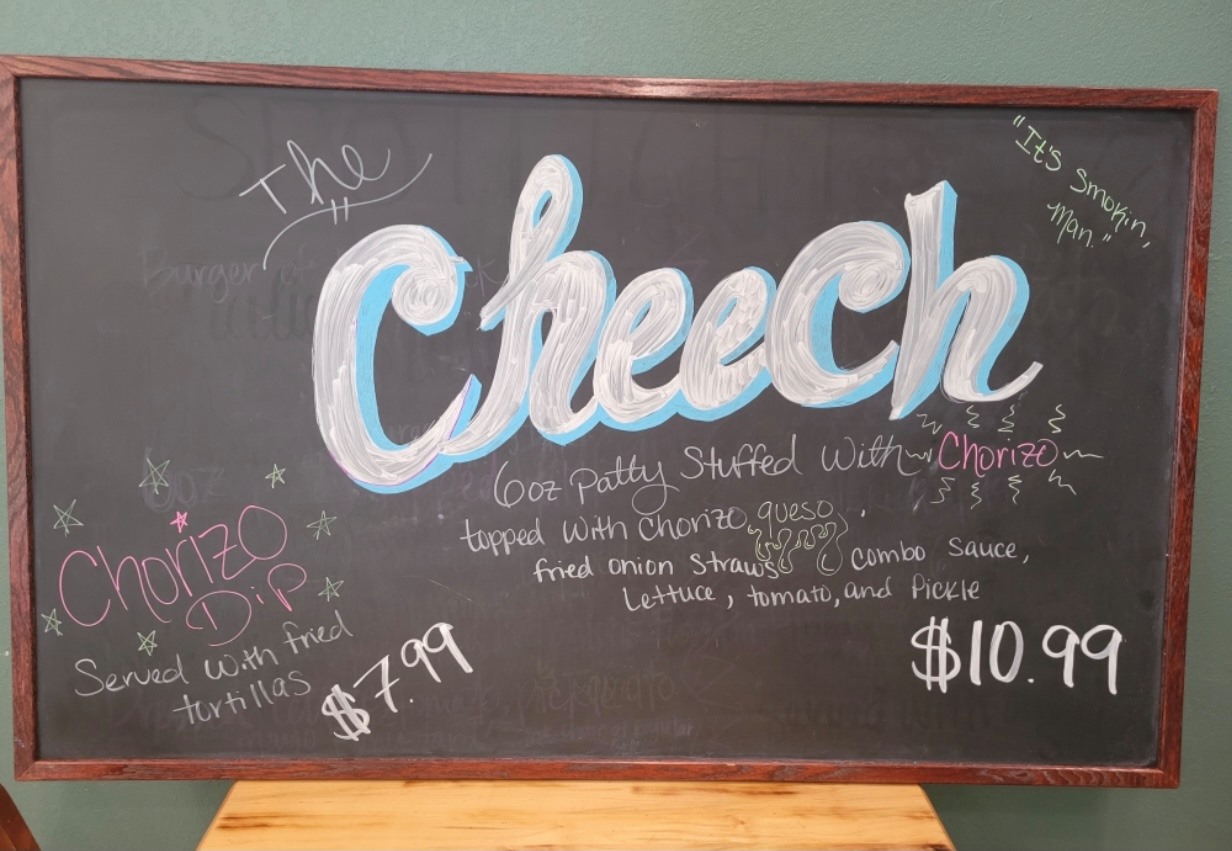 The
Cheech
"It's Smokin,
Man."
6oz Patty Stuffed With Chorizo
topped with Chorizo, queso,
fried onion Straws combo sauce,
Lettuce, tomato, and Pickle
$10.99
Chorizo
Dip
Served with fried
tortillas
$7.99
Burger of
6oz